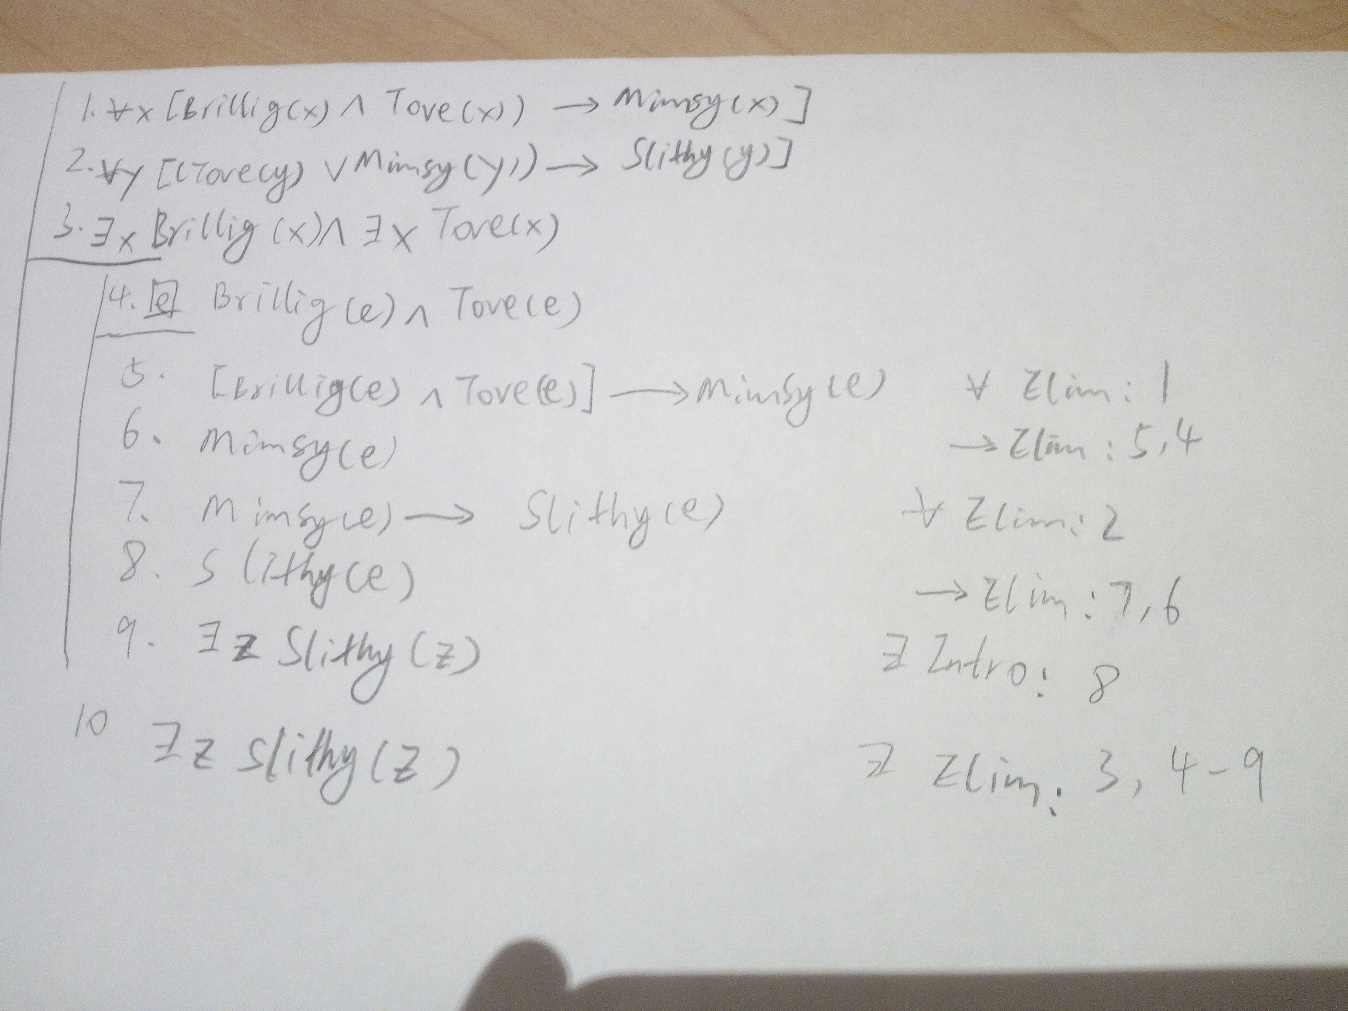 1. ∀x [Brillig(x) ∧ Tove(x)) → Mimsy(x)]
2. ∀y [(Tove(y) ∨ Mimsy(y)) → Slithy(y)]
3. ∃x Brillig(x) ∧ ∃x Tove(x)
4. e Brillig(e) ∧ Tove(e)
5. [Brillig(e) ∧ Tove(e)] → Mimsy(e) ∀ Elim: 1
6. Mimsy(e) → Elim: 5,4
7. Mimsy(e) → Slithy(e) ∀ Elim: 2
8. Slithy(e) → Elim: 7,6
9. ∃z Slithy(z) ∃ Intro: 8
10 ∃z Slithy(z) ∃ Elim: 3, 4-9